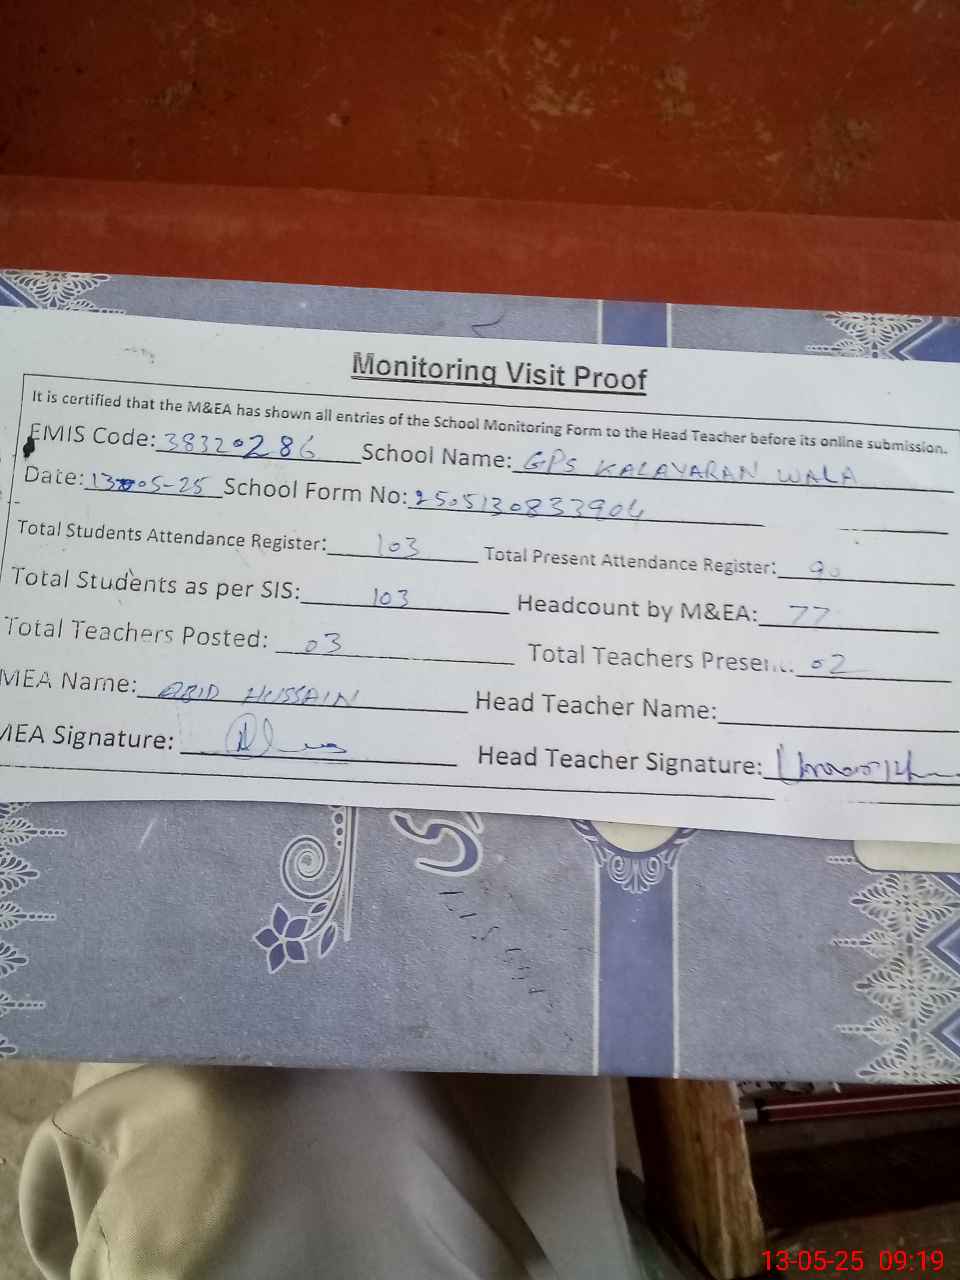 Monitoring Visit Proof
It is certified that the M&EA has shown all entries of the School Monitoring Form to the Head Teacher before its online submission.
EMIS Code: 38320286 School Name: GPS KALAYARAN WALA
Date: 13-05-25 School Form No: 2505130833904
Total Students Attendance Register: 103 Total Present Attendance Register: 90
Total Students as per SIS: 103 Headcount by M&EA: 77
Total Teachers Posted: 03 Total Teachers Present: 02
MEA Name: ABID HUSSAIN Head Teacher Name:
MEA Signature: Head Teacher Signature:
13-05-25 09:19